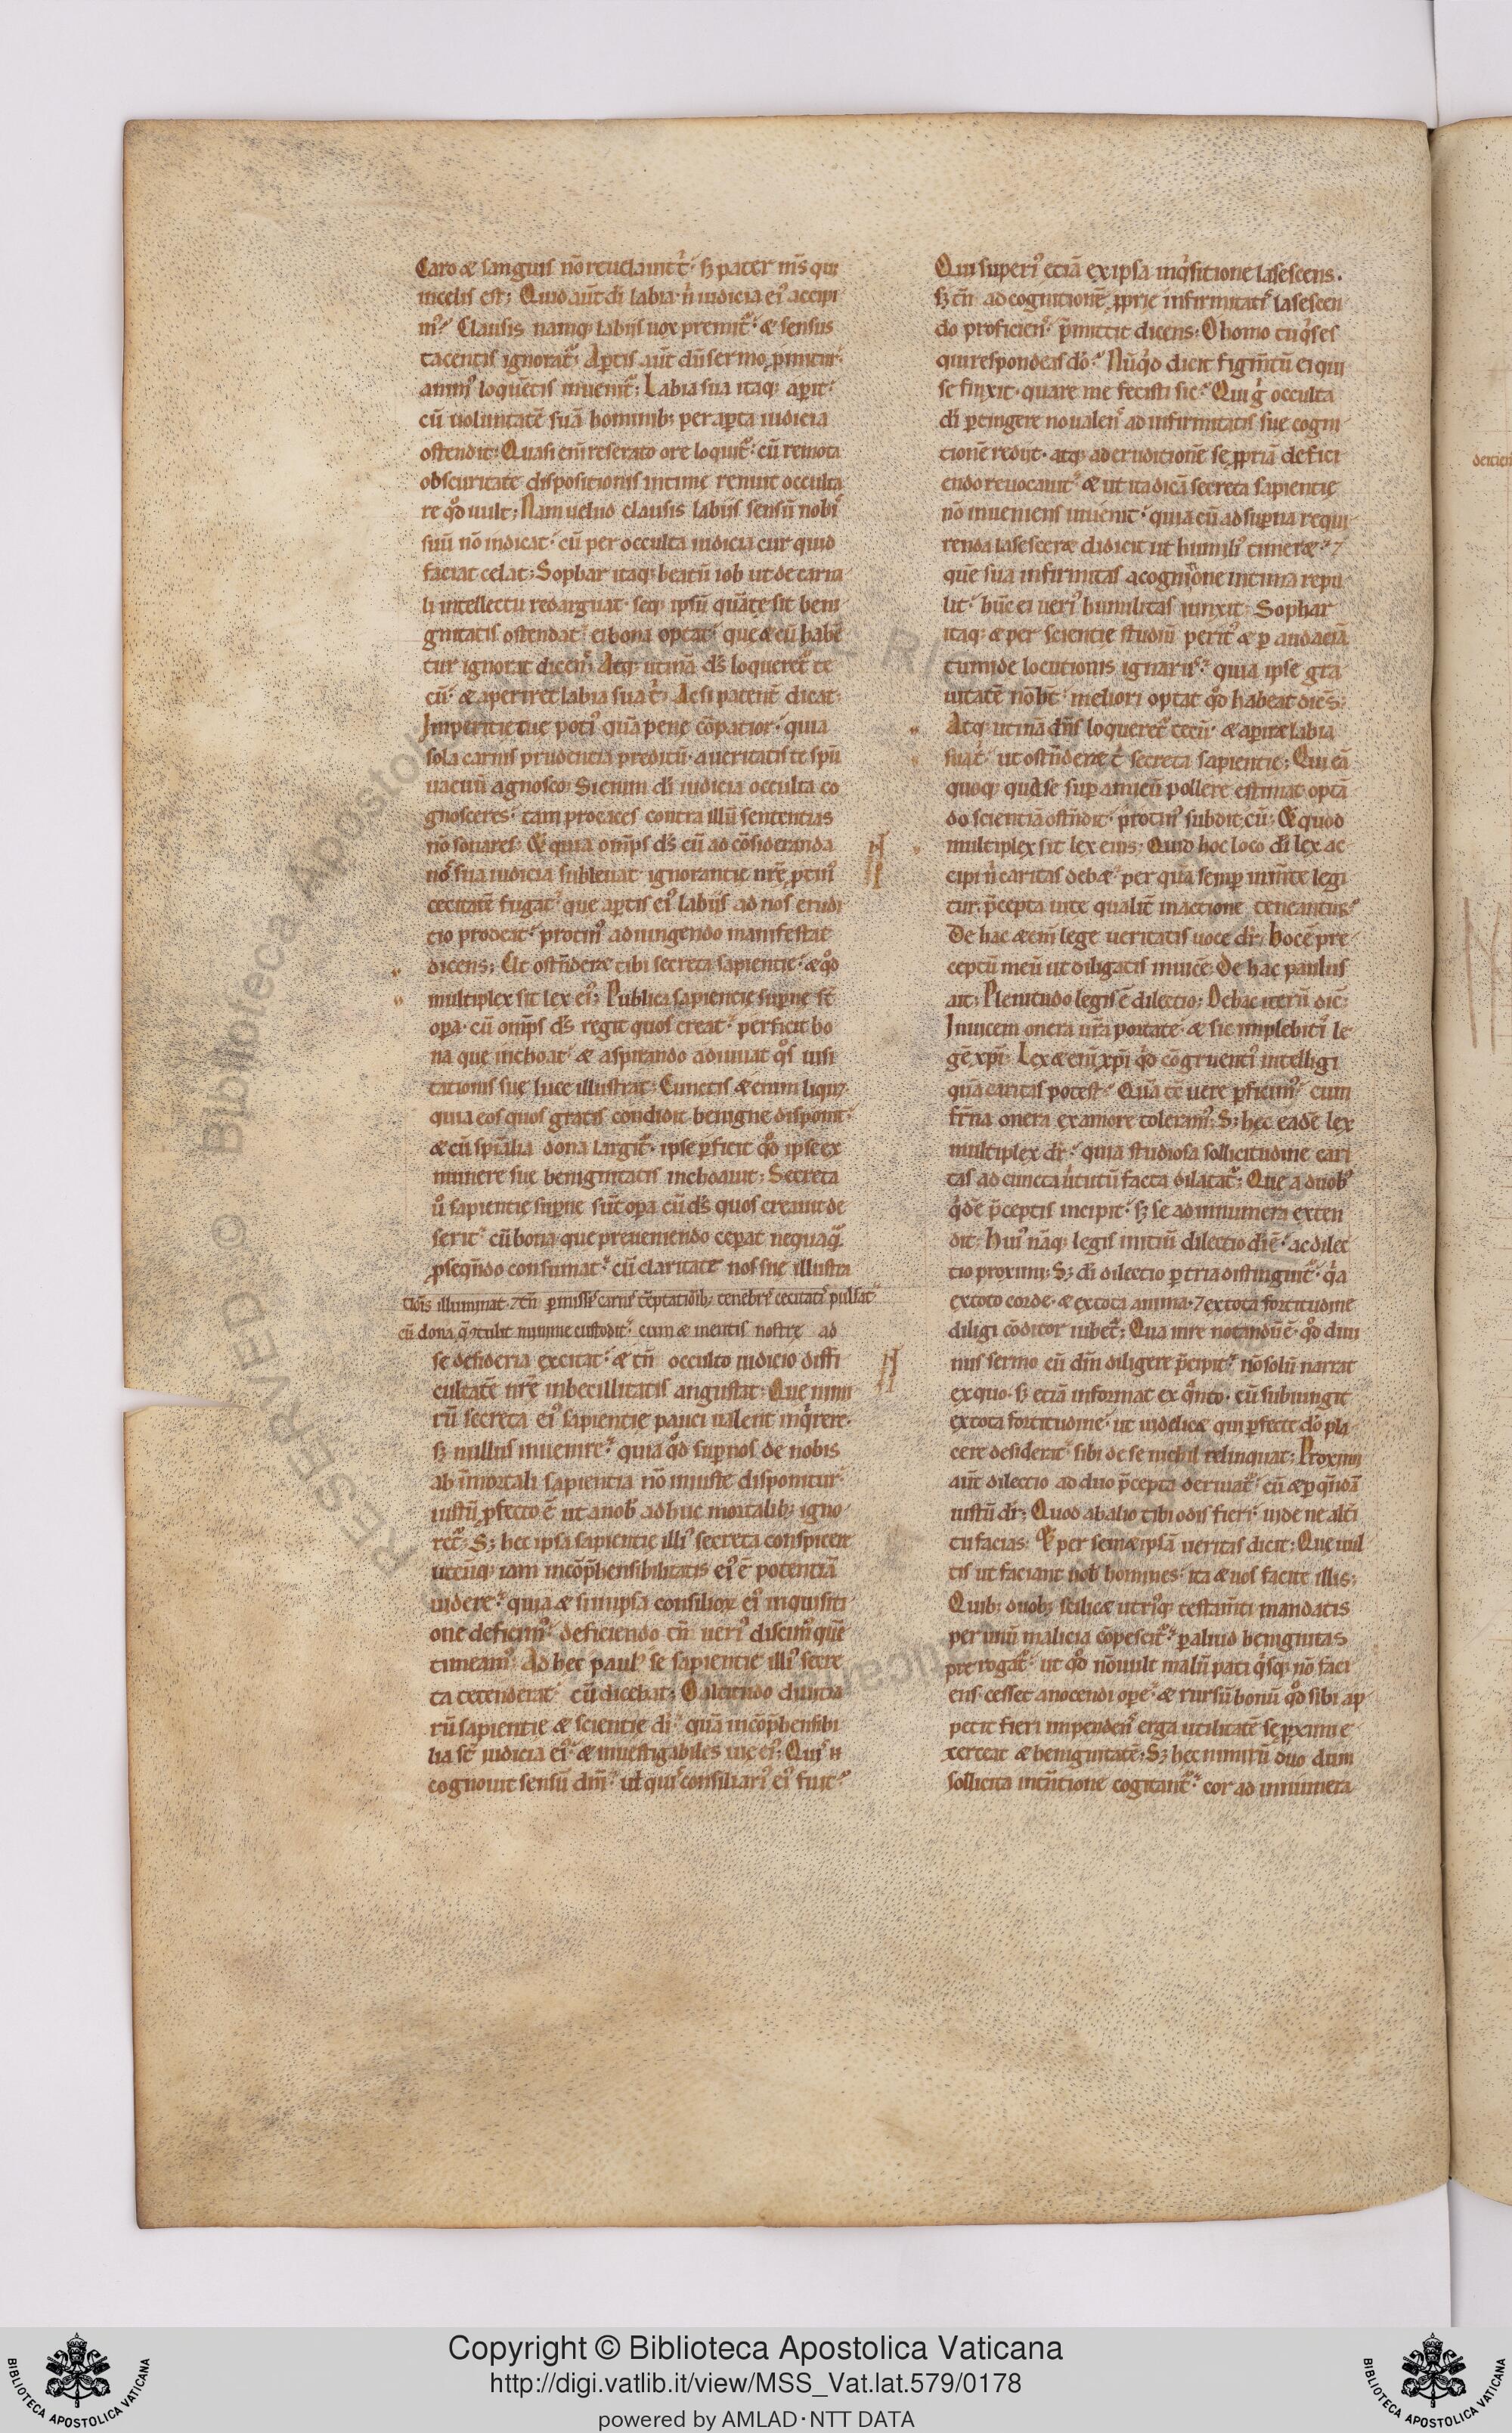 Caro & sanguis nõ reuelauit t̾; sꝫ pater mſ qui
incelis est; Quid aut̃ di labia n̾ iudicia ei᾽ accipi
m᾽? Clausis namq; labiis uox premit᷑. & sensus
tacentis ignorat᷑; Aꝑtis aut̃ dũ sermo ꝓmitur.
anim᾽ loquẽtis inuenit᷑; Labia sua itaq; aꝑit.
cũ uoluntatẽ suã hominib; per aꝑta iudicia
ostendit; Quasi enĩ reserato ore loquit᷑. cũ remota
obscuritate dispositionis intime renuit occulta
re qd̾ uult; Nam uelud clausis labiis sensũ nobis
suũ nõ indicat. cũ per occulta iudicia cur quid
faciat celat; Sophar itaq; beatũ iob ut de carna
li intellectu redarguat. seq; ipsũ quãte sit beni
gnitatis ostendat. ei bona optat. que & cũ habẽ
tur ignorat dicens; Atq; utinã dſ loqueret᷑ te
cũ. & aperiret labia sua t̾; Ac si patent̾ dicat;
Imperitie tue poti᾽ quã pene cõpatior. quia
sola carnis prudentia preditũ. a ueritatis te spũ
uacuũ agnosco; Si enim di iudicia occulta co
gnosceres. tam procaces contra illũ sententias
nõ sonares; & quia omps dſ cũ ad cõsideranda
nos sua iudicia subleuat. ignorantie nr̃e ꝓtin᾽
cecitatẽ fugat. que aꝑtis ei᾽ labiis ad nos erudi
tio prodeat. protin᾽ adiungendo manifestat
dicens; Ut ostñderet tibi secreta sapientie. & qd̾
multiplex sit lex ei᾽; Publica sapientie suꝑne st̃
oꝑa. cũ omps dſ regit quos creat. perficit bo
na que inchoat. & aspirando adiuuat qos uisi
tationis sue luce illustrat; Cunctis & enim liqꝫ
quia eos quos gratis condidit. benigne disponit.
& cũ spĩalia dona largit᷑. ipse ꝑficit qd̾ ipse ex
munere sue benignitatis inchoauit; Secreta
u̾ sapientie suꝑne sũt oꝑa cũ dſ quos creauit de
serit. cũ bona que preueniendo ceꝑat nequaq̃
ꝓseqñdo consumat. cũ claritate nos sue illustra
tiõis illuminat. ⁊ tñ ꝑmissis carnis tẽptatiõib; tenebris cecitatis pulsat
cũ dona q̃ ꝯtulit minime custodit. cum & mentis nostre ad
se desideria excitat. & tñ occulto iudicio diffi
cultatẽ nr̃e inbecillitatis angustat; Que nimi
rũ secreta ei᾽ sapientie pauci ualent inq̾rere.
sꝫ nullus inuenire. quia qd̾ suꝑ nos de nobis
ab ĩmortali sapientia nõ iniuste disponitur.
iustũ ꝓfecto ẽ ut a nob᾽ adhuc mortalib; igno
ret᷑; Sꝫ hec ipsa sapientie illi᾽ secreta conspicere
utcũq; iam incõp̃hensibilitatis ei᾽ ẽ potentiã
uidere. quia & in ipsa consilioꝝ ei᾽ inquisiti
one deficim᾽. deficiendo tñ ueri᾽ discim᾽ quẽ
timeam᾽; Ad hec paul᾽ se sapientie illi᾽ secre
ta tetenderat. cũ dicebat; O altitudo diuitia
rũ sapientie & scientie di. quã incõp̃hensibi
lia st̃ iudicia ei᾽. & inuestigabiles uie ei᾽; Quis n̄
cognouit sensũ dm̃i. ul̾ quis consiliari᾽ ei᾽ fuit?
Qui superi᾽ etiã ex ipsa inq̾sitione lasescens.
sꝫ tñ ad cognitionẽ ꝓprie infirmitatis lasescen
do proficiens. p̃mittit dicens; O homo tu q̾s es
qui respondeas dõ? Nũq̾d dicit figm̃tũ ei qui
se finxit. quare me fecisti sic? Qui g̾ occulta
di ꝑtingere no ualens ad infirmitatis sue cogni
tionẽ rediit. atq; ad eruditionẽ se ꝓpriã defici
endo reuocauit. & ut ita dicã secreta sapientie
nõ inueniens inuenit. quia cũ ad suꝑna requi
renda lasesceret didicit ut humili᾽ timeret. ⁊
quẽ sua infirmitas a cognitiõne intima repu
lit. hũc ei ueri᾽ humilitas iunxit; Sophar
itaq; & per scientie studiũ perit᾽ & ꝑ audaciã
tumide locutionis ignarus. quia ipse gra
uitatẽ nõ h̾t. meliori optat qd̾ habeat diẽs;
Atq; utinã dñs loqueret᷑ tecũ. & aꝑiret labia
sua t̾. ut ostñderet t̾ secreta sapientie; Qui eã
quoq; qua se suꝑ amicũ pollere estimat. optã
do scientiã ostñdit. protin᾽ subdit cũ; & quod
multiplex sit lex eius; Quid hoc loco di lex ac
cipi n̾ caritas debet. per qua semꝑ in m̃te legi
tur. p̃cepta uite qualit̾ in actione teneantur?
De hac & eni lege ueritatis uoce dr̃; Hoc ẽ pre
ceptũ meũ ut diligatis inuicẽ; De hac paulus
ait; Plenitudo legis ẽ dilectio; De hac iterũ dic̃;
Inuicem onera ur̃a portate. & sic implebitis le
gẽ xp̃i; Lex & eni xp̃i q̾d cõgruentius intelligi
quã caritas potest? Quã tẽ uere ꝑficim᾽. cum
fr̃na onera ex amore toleram᾽; Sꝫ hec eadẽ lex
multiplex dr̃. quia studiosa sollicitudine cari
tas ad cuncta u̾tutũ facta dilatat᷑; Que a duob᾽
q̾dẽ p̃ceptis incipit. sꝫ se ad innumera exten
dit; Hui᾽ nãq; legis initiũ dilectio di ẽ. ac dilec
tio proximi; Sꝫ di dilectio ꝑ tria distinguit᷑. q̾a
ex toto corde. & ex tota anima. ⁊ ex tota fortitudine
diligi cõditor iubet᷑; Qua in re notandũ ẽ. qd̾ diui
nus sermo cũ dm̃ diligere p̃cipit. nõ solũ narrat
ex quo. sꝫ etiã informat ex q̾nto. cũ subiungit
ex tota fortitudine. ut uidelicet qui ꝑfecte dõ pla
cere desiderat. sibi de se nichil relinquat; Proximi
aut̃ dilectio ad duo p̃cepta deriuat᷑. cũ & ꝑ quẽdã
iustũ dr̃; Quod ab alio tibi odis fieri. uide ne alt̾i
tu facias; & per semetipsã ueritas dicit; Que uul
tis ut faciant uob᾽ homines. ita & uos facite illis;
Quib; duob; scilicet utri᾽q; testam̃ti mandatis
per unũ malicia cõpescit᷑. ꝑ aliud benignitas
prerogat᷑. ut qd̾ nõ uult malũ pati q̾sq; nõ faci
ens. cesset a nocendi oꝑe. & rursũ bonũ qd̾ sibi ap
petit fieri impendens erga utilitatẽ se ꝓximi e
xerceat & benignitatẽ; Sꝫ hec nimirũ duo dum
sollicita intẽtione cogitant᷑. cor ad innumera
Copyright © Biblioteca Apostolica Vaticana
http://digi.vatlib.it/view/MSS_Vat.lat.579/0178
powered by AMLAD·NTT DATA
BIBLIOTECA APOSTOLICA VATICANA
BIBLIOTECA APOSTOLICA VATICANA